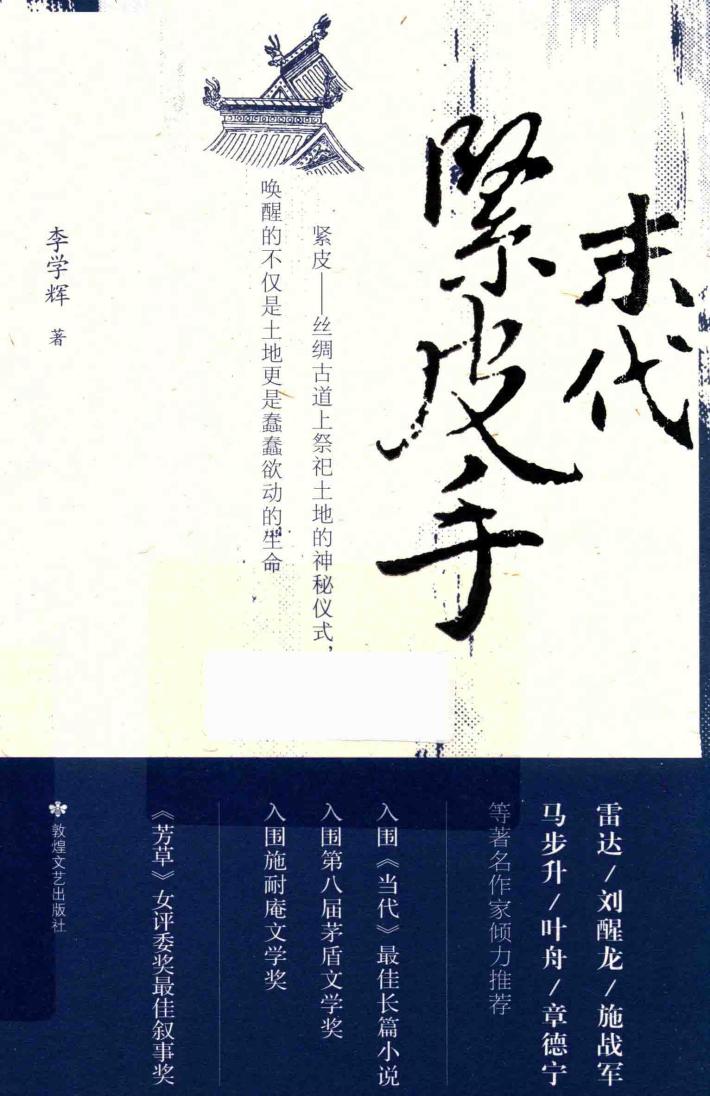 末代
緊皮手
紧皮——丝绸古道上祭祀土地的神秘仪式，
唤醒的不仅是土地更是蠢蠢欲动的生命
李学辉 著
雷达/刘醒龙/施战军
马步升/叶舟/章德宁
等著名作家倾力推荐
入围《当代》最佳长篇小说
入围第八届茅盾文学奖
入围施耐庵文学奖
《芳草》女评委奖最佳叙事奖
敦煌文艺出版社